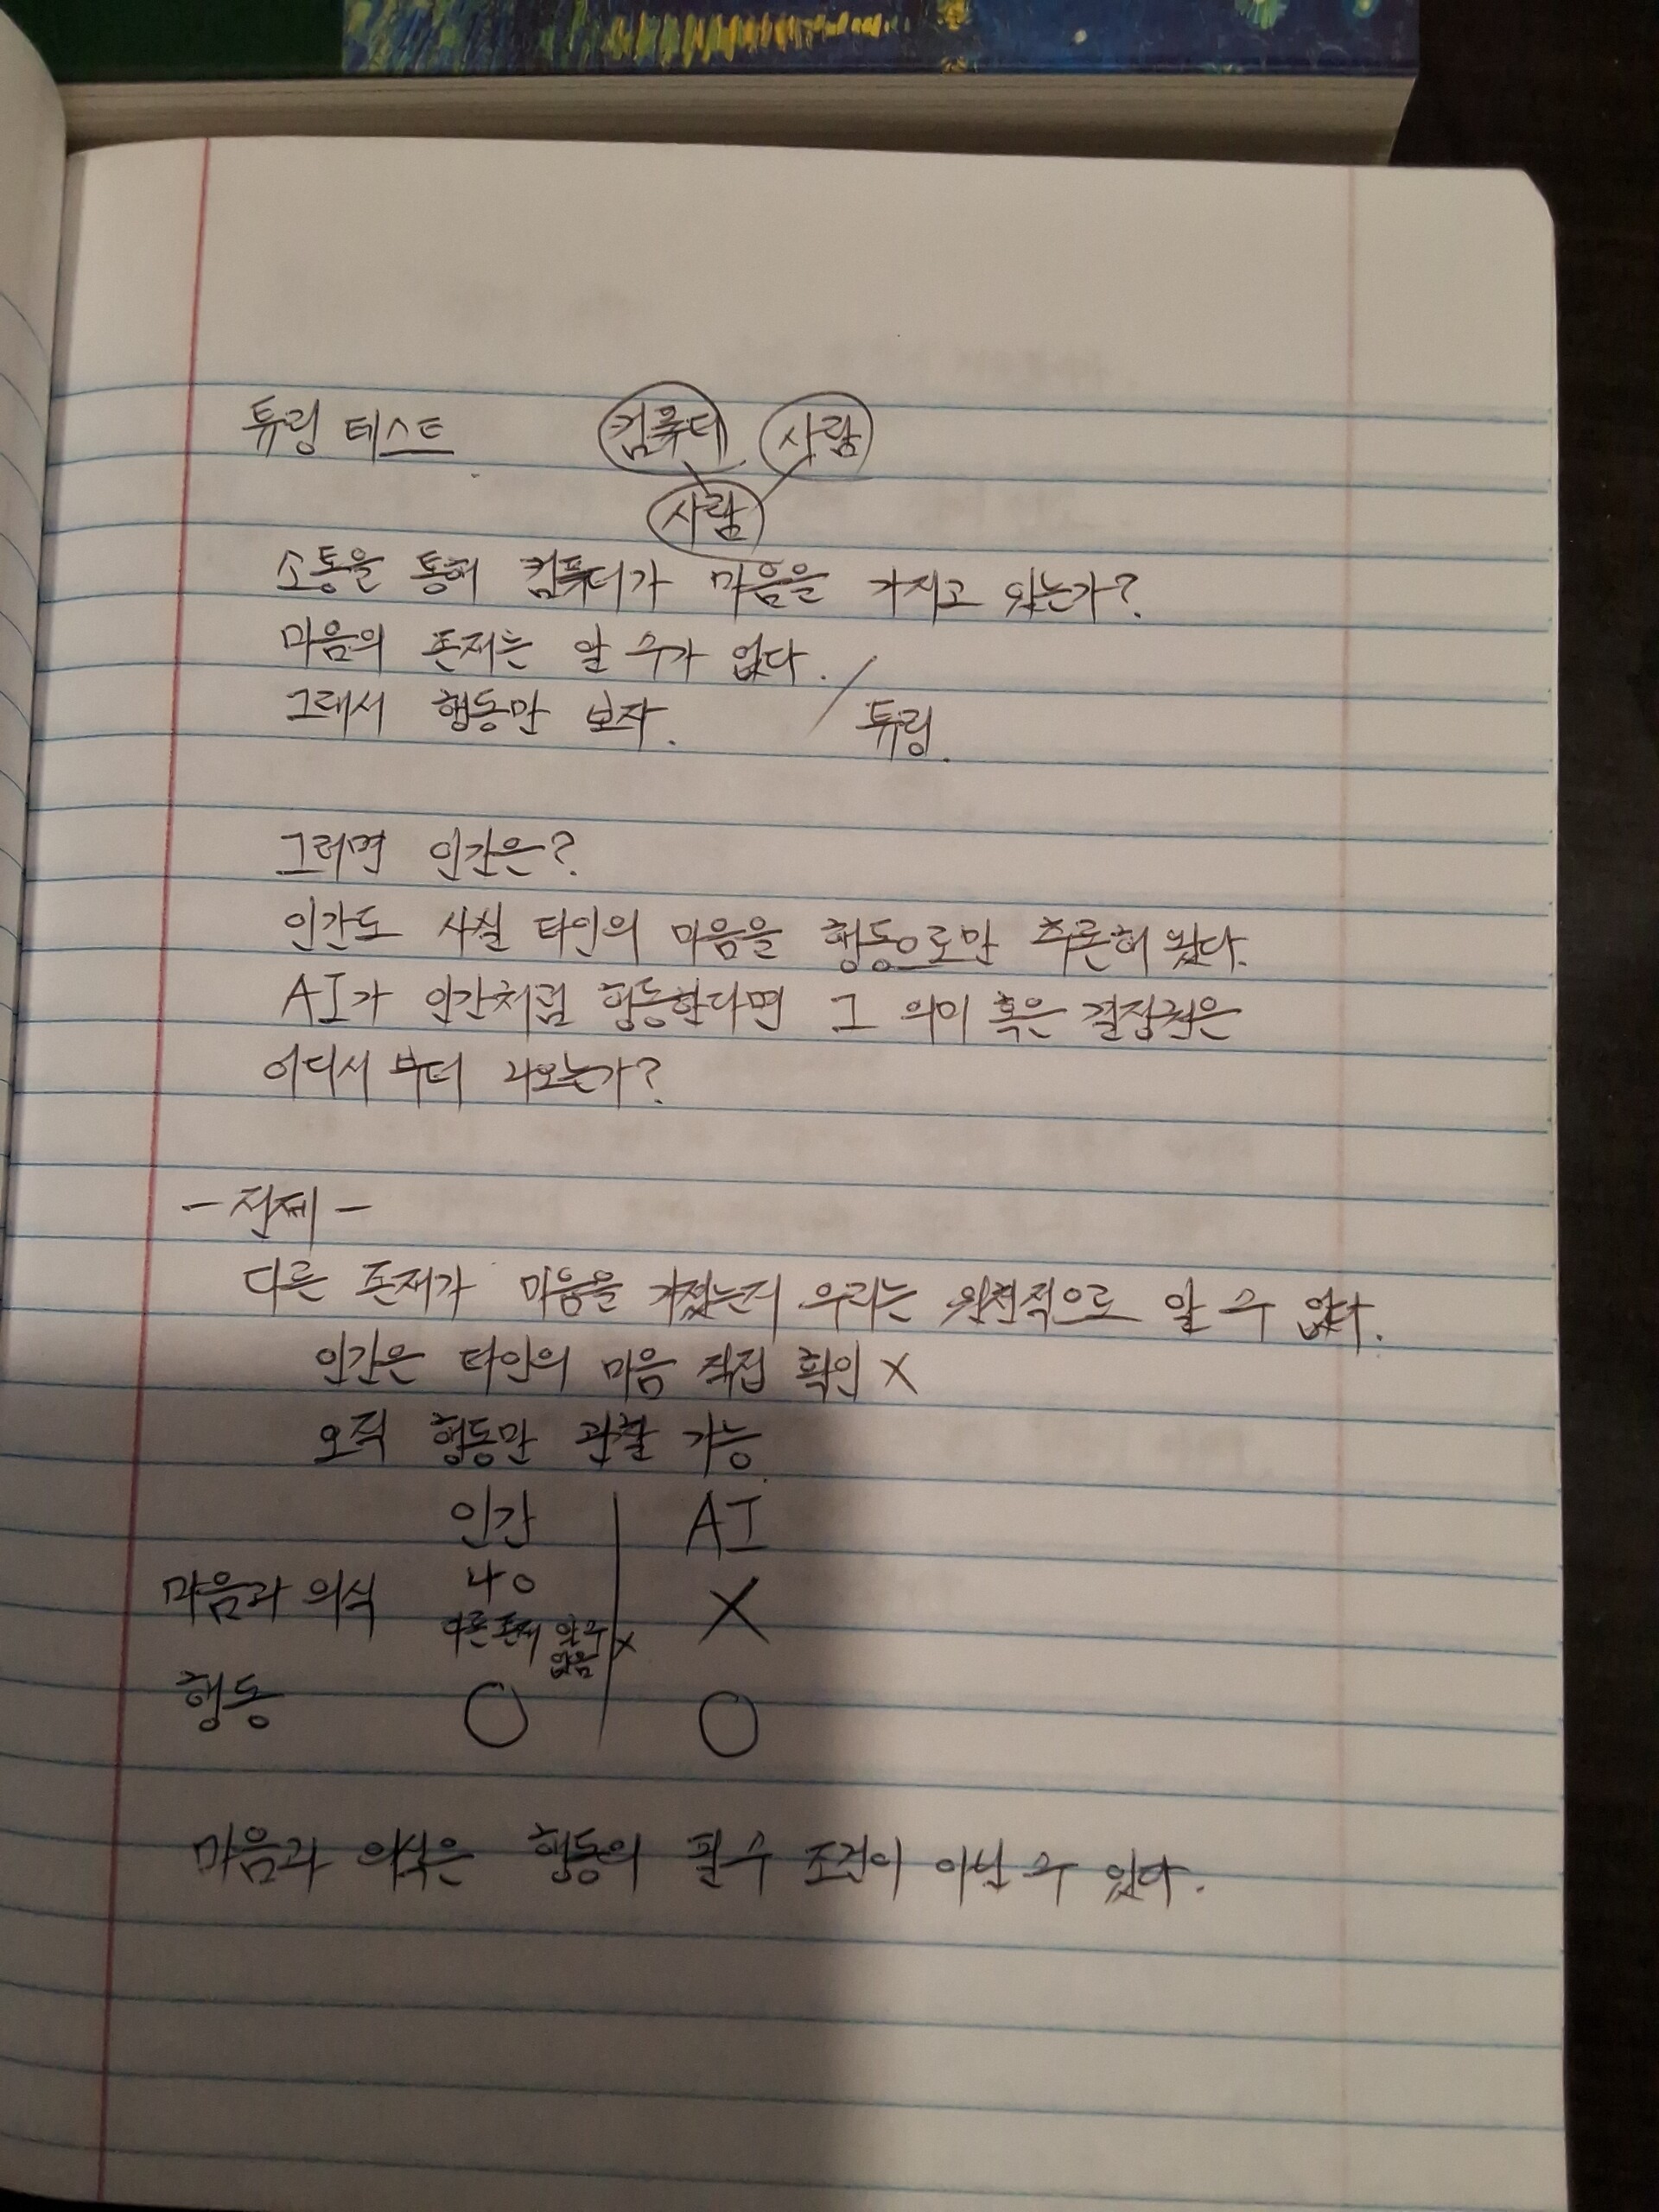 튜링 테스트
컴퓨터 사람
사람
소통을 통해 컴퓨터가 마음을 가지고 있는가?
마음의 존재는 알 수가 없다.
그래서 행동만 보자. / 튜링.
그러면 인간은?
인간도 사실 타인의 마음을 행동으로만 추론해 왔다.
AI가 인간처럼 행동한다면 그 의미 혹은 결정권은
어디서 부터 나오는가?
- 전제 -
다른 존재가 마음을 가졌는지 우리는 원천적으로 알 수 없다.
인간은 타인의 마음 직접 확인 X
오직 행동만 관찰 가능.
인간 AI
마음과 의식 나 O X
다른 존재 알 수 없음 X
행동 O O
마음과 의식은 행동의 필수 조건이 아닐 수 있다.